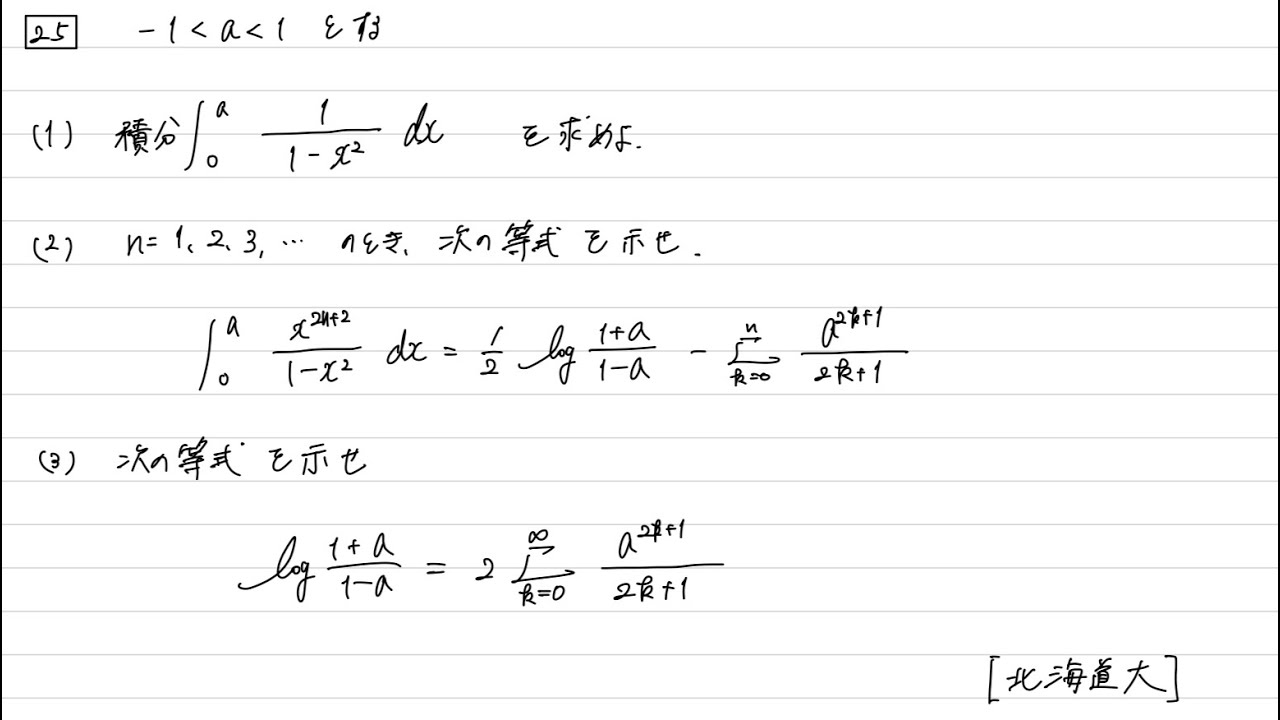 25 -1 < a < 1 とする
(1) 積分 ∫_0^a 1/(1-x^2) dx を求めよ.
(2) n = 1、2、3, … のとき、次の等式を示せ.
∫_0^a x^{2n+2}/(1-x^2) dx = 1/2 log (1+a)/(1-a) - Σ_{k=0}^{n} a^{2k+1}/(2k+1)
(3) 次の等式を示せ
log (1+a)/(1-a) = 2 Σ_{k=0}^{∞} a^{2k+1}/(2k+1)
[北海道大]